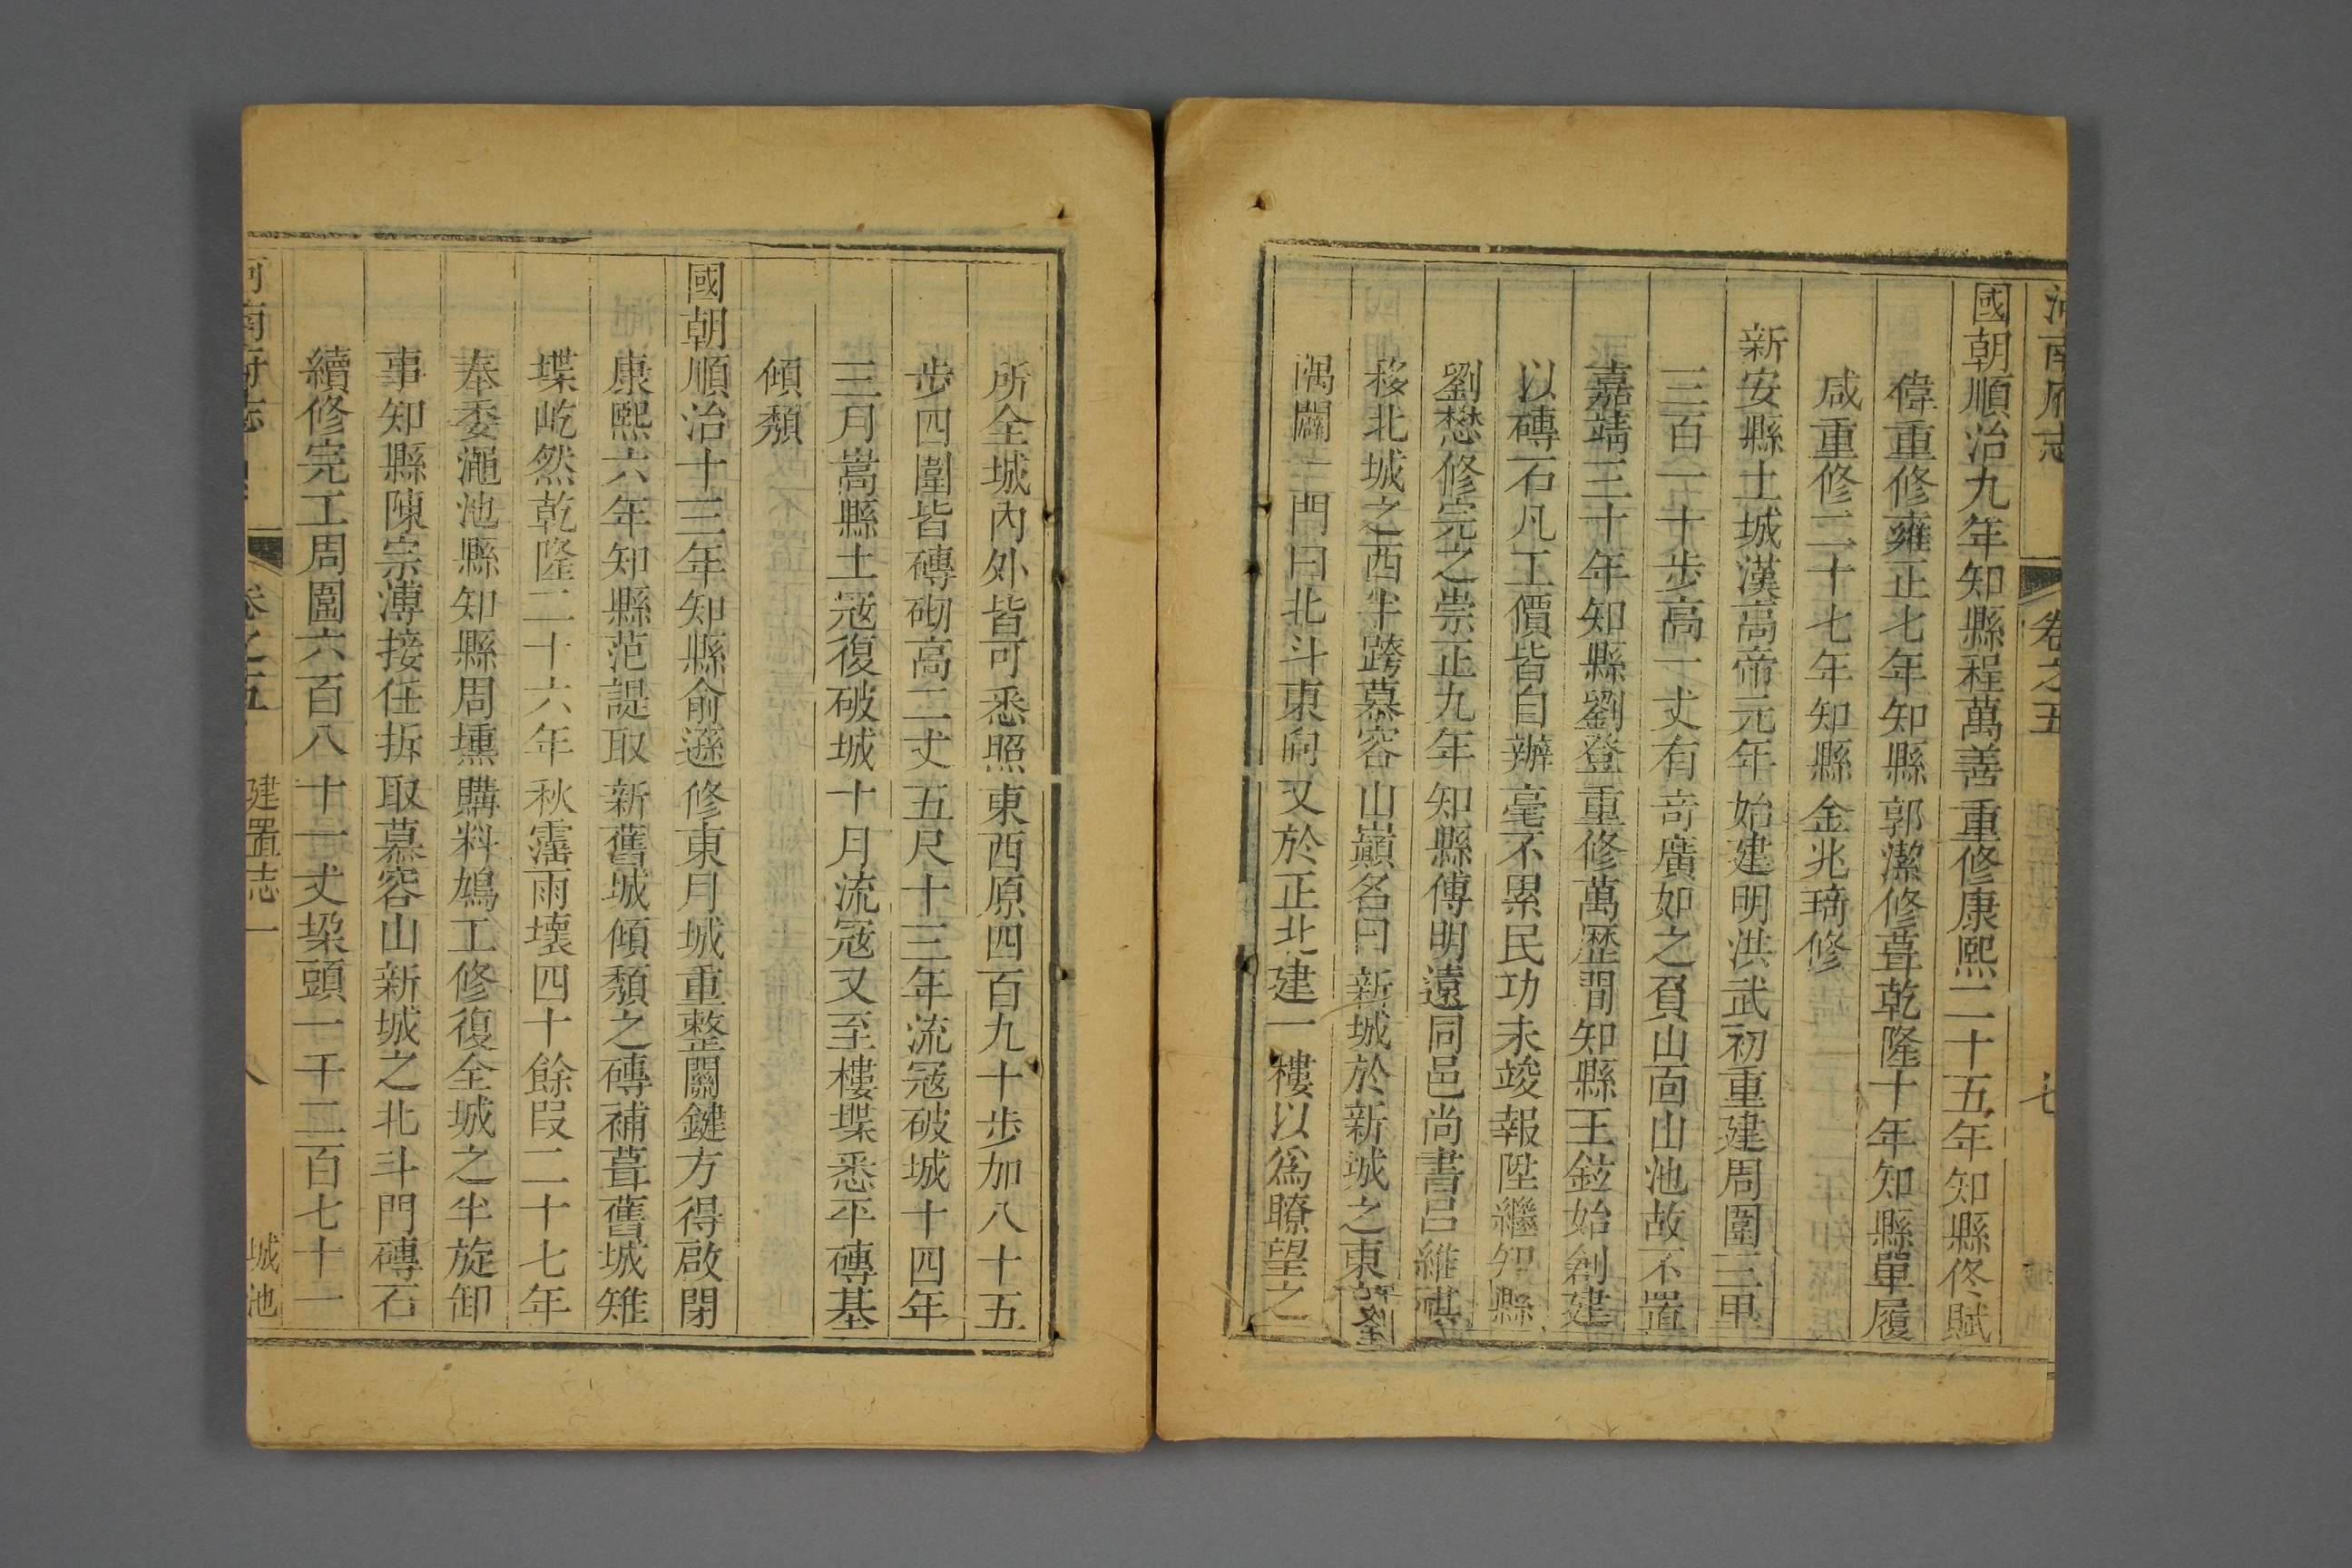 河南府志 卷之五 七
國朝順治九年知縣程萬善重修康熙二十五年知縣佟賦
偉重修雍正七年知縣郭潔修葺乾隆十年知縣單履
咸重修二十七年知縣金兆琦修
新安縣土城漢高帝元年始建明洪武初重建周圍三里
三百一十步高一丈有奇廣如之負山面山池故不置
嘉靖三十年知縣劉登重修萬歷間知縣王鉉始創建
以磚石凡工價皆自辦毫不累民功未竣報陞繼知縣
劉懋修完之崇正九年知縣傅明遠同邑尚書呂維祺
移北城之西半跨慕容山巔名曰新城於新城之東
隅闢一門曰北斗東向又於正北建一樓以為瞭望之
所全城內外皆可悉照東西原四百九十步加八十五
步四圍皆磚砌高二丈五尺十三年流寇破城十四年
三月嵩縣土寇復破城十月流寇又至樓堞悉平磚基
傾頹
國朝順治十三年知縣俞遜修東月城重整關鍵方得啟閉
康熙六年知縣范諟取新舊城傾頹之磚補葺舊城雉
堞屹然乾隆二十六年秋霪雨壞四十餘段二十七年
奉委澠池縣知縣周壎購料鳩工修復全城之半旋卸
事知縣陳宗溥接任拆取慕容山新城之北斗門磚石
續修完工周圍六百八十一丈垛頭一千二百七十一
河南府志 卷之五 建置志一 八 城池